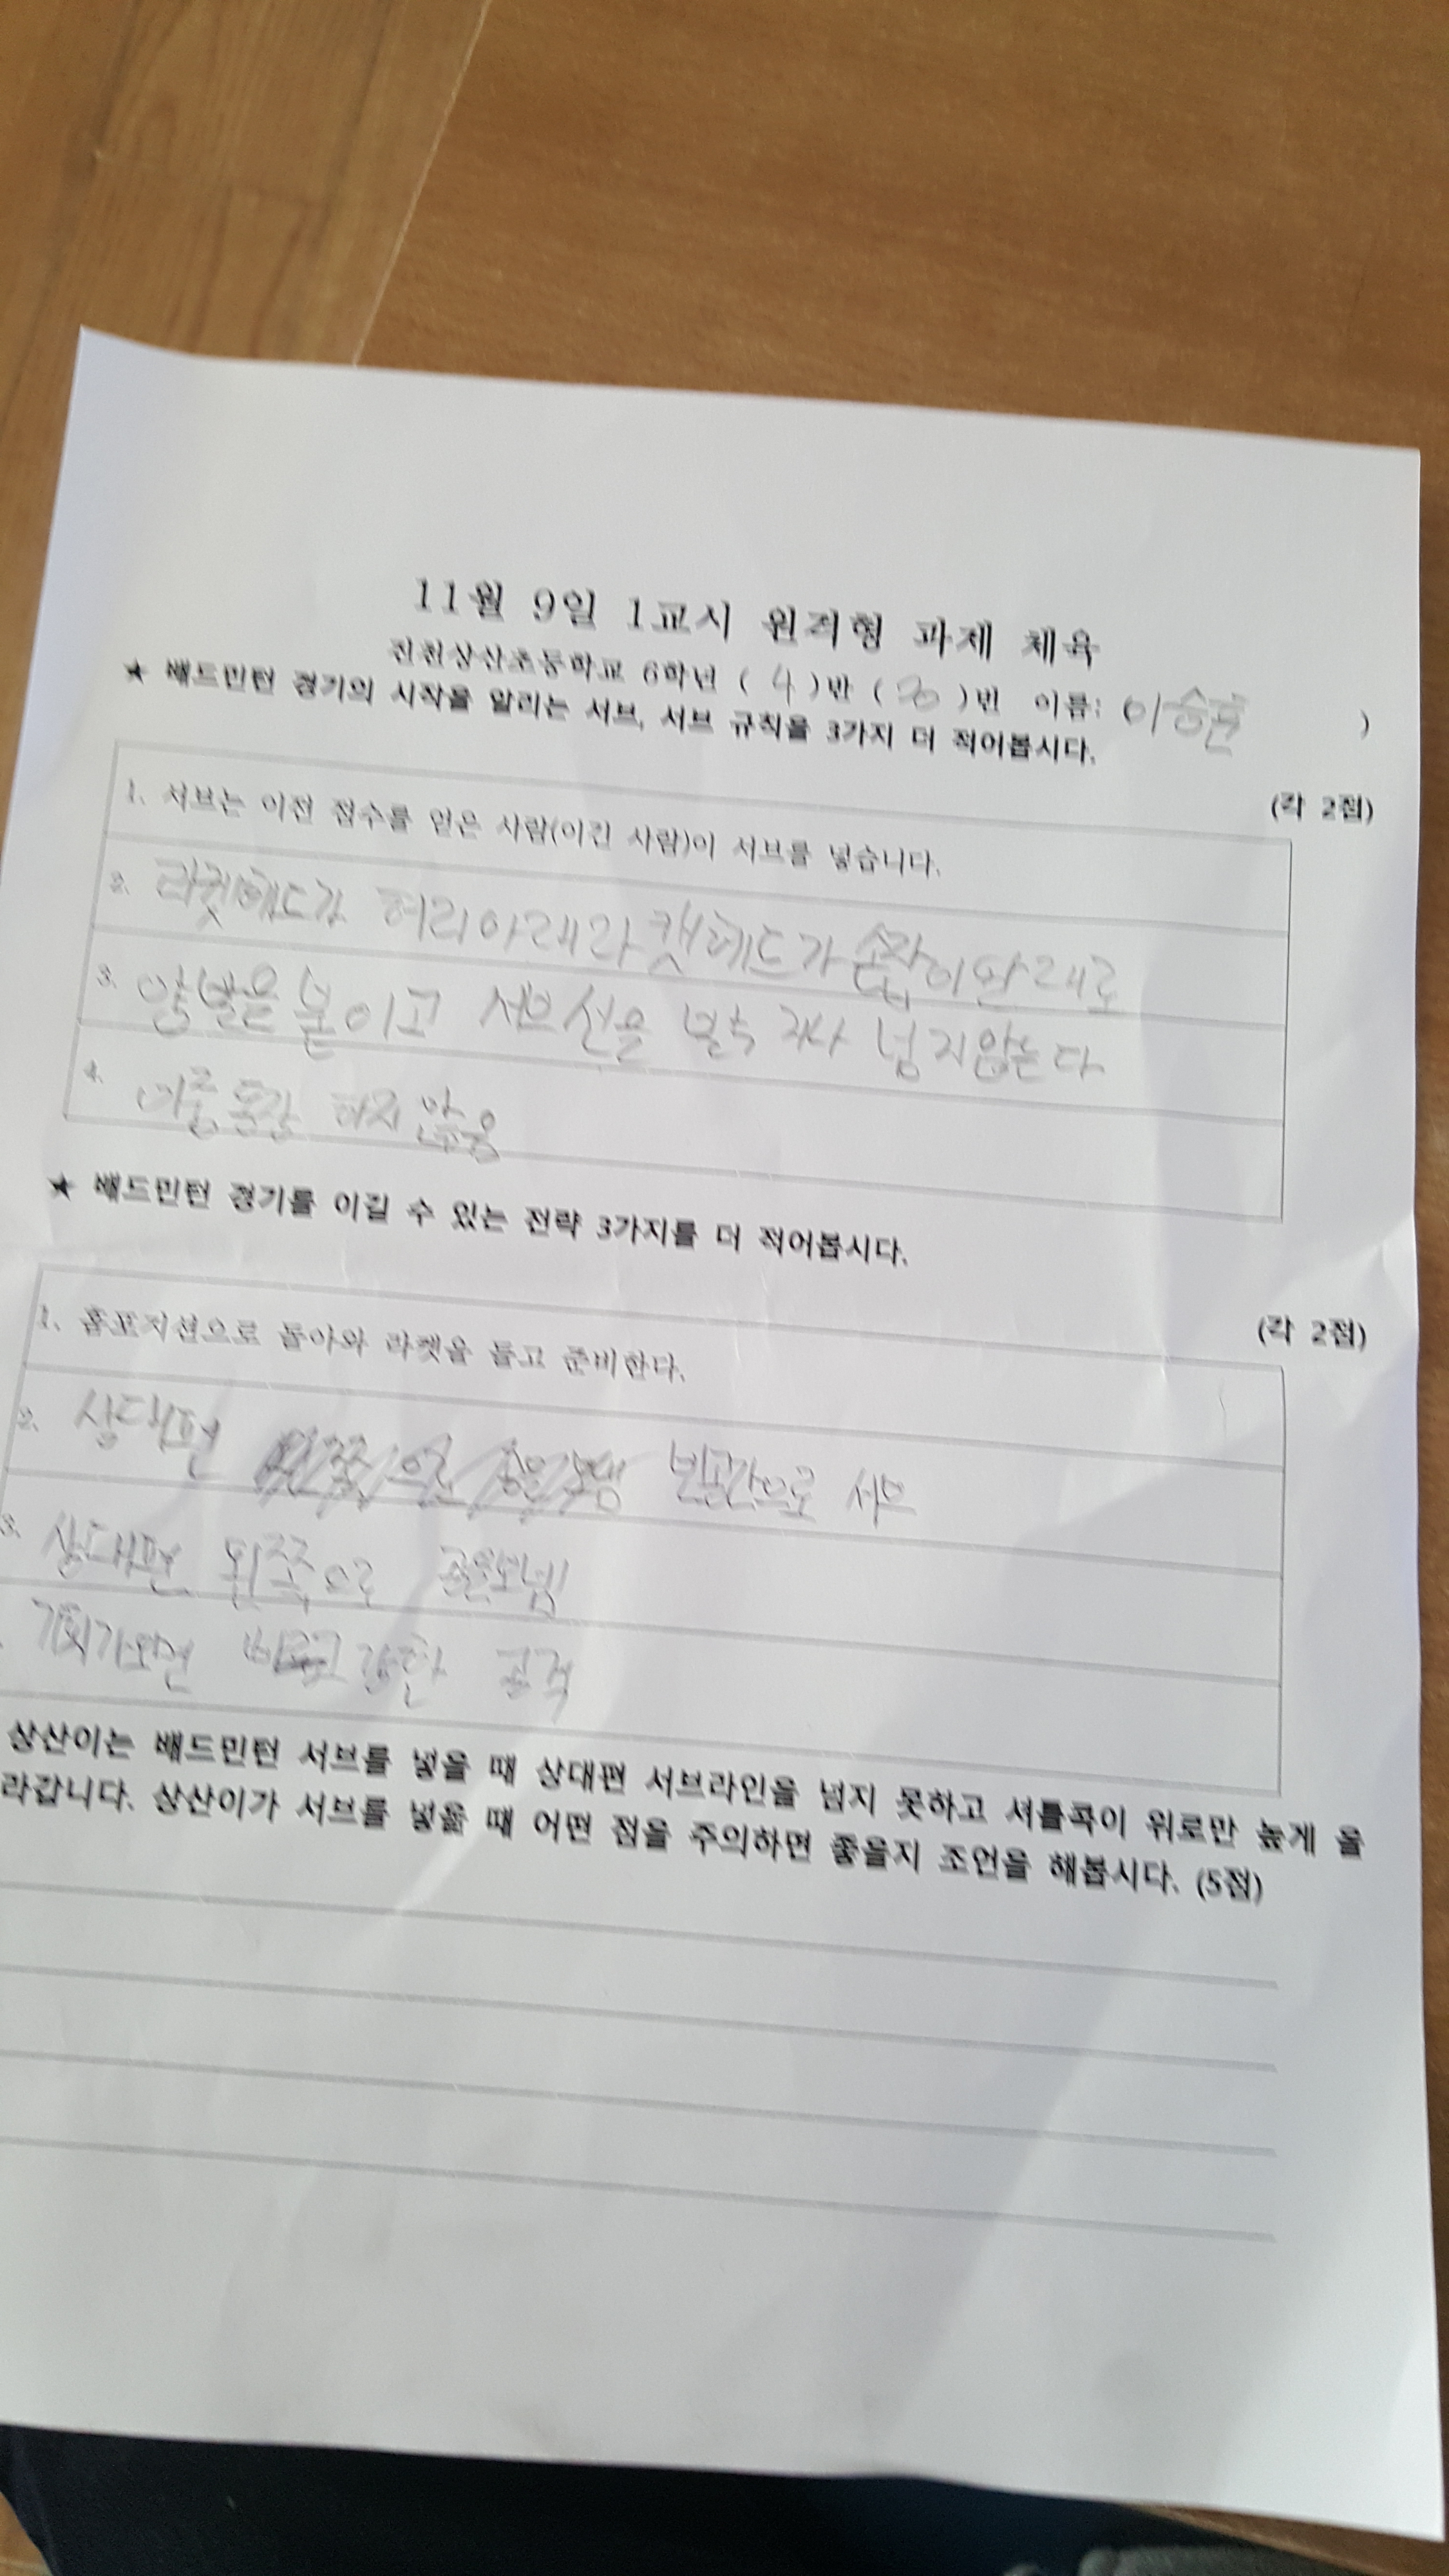 11월 9일 1교시 원격형 과제 체육
진천상산초등학교 6학년 ( 4 )반 ( 20 )번 이름: ( 이승환 )
★ 배드민턴 경기의 시작을 알리는 서브, 서브 규칙을 3가지 더 적어봅시다.
(각 2점)
1. 서브는 이전 점수를 얻은 사람(이긴 사람)이 서브를 넣습니다.
2. 라켓헤드가 허리아래 라켓헤드가 손잡이 아래로
3. 양발을 붙이고 서브선을 넘지않는다
4. 이중동작 하지 않음
★ 배드민턴 경기를 이길 수 있는 전략 3가지를 더 적어봅시다.
(각 2점)
1. 홈포지션으로 돌아와 라켓을 들고 준비한다.
2. 상대편 빈공간으로 서브
3. 상대편 뒤쪽으로 공을보냄
기회가오면 바로 강한 공격
상산이는 배드민턴 서브를 넣을 때 상대편 서브라인을 넘지 못하고 셔틀콕이 위로만 높게 올
라갑니다. 상산이가 서브를 넣을 때 어떤 점을 주의하면 좋을지 조언을 해봅시다. (5점)